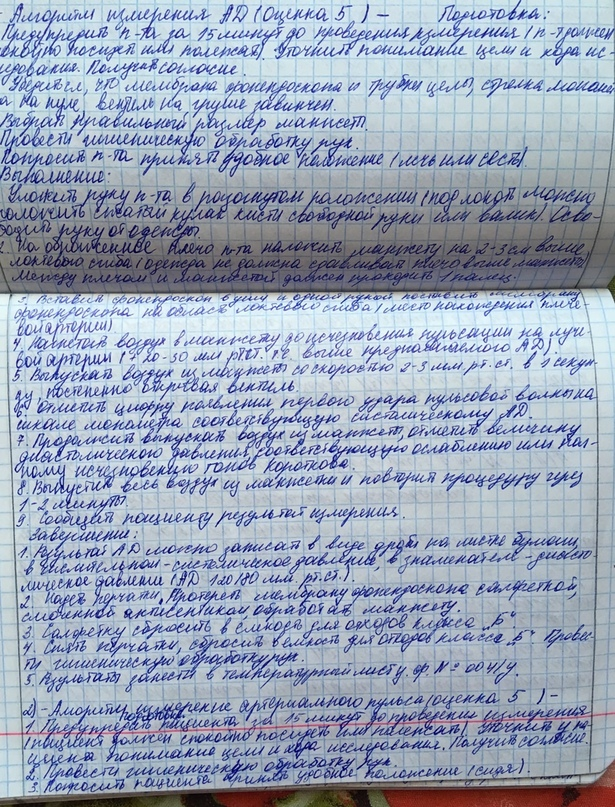 - Алгоритм измерения АД (Оценка 5) - Подготовка:
Предупредить п-та за 15 минут до проведения измерения (п-т должен
спокойно посидеть или полежать). Уточнить понимание цели и хода ис-
следования. Получить согласие.
Убедиться, что мембрана фонендоскопа и трубки целы, стрелка маноме-
на нуле, вентиль на груше завинчен.
Выбрать правильный размер манжеты.
Провести гигиеническую обработку рук.
Попросить п-та принять удобное положение (лечь или сесть).
Выполнение:
Уложить руку п-та в разогнутом положении (под локоть можно
положить сжатый кулак кисти свободной руки или валик). Осво-
бодить руку от одежды.
2. На обнаженное плечо п-та наложить манжету на 2-3 см выше
локтевого сгиба (одежда не должна сдавливать плечо выше манжеты)
Между плечом и манжетой должен проходить 1 палец.
3. Вставить фонендоскоп в уши и одной рукой поставить мембрану
фонендоскопа на область локтевого сгиба (место нахождения плече-
вой артерии)
4. Нагнетать воздух в манжету до исчезновения пульсации на луче-
вой артерии (+ 20-30 мм рт.ст. т.е. выше предполагаемого АД)
5. Выпускать воздух из манжеты со скоростью 2-3 мм.рт.ст. в 1 секун-
ду, постепенно открывая вентиль.
6. Отметить цифру появления первого удара пульсовой волны на
шкале монометра соответствующую систолическому АД.
7. Продолжить выпускать воздух из манжеты, отметить величину
диастолического давления, соответствующую ослаблению или пол-
ному исчезновению тонов Короткова.
8. Выпустить весь воздух из манжетки и повторить процедуру через
1-2 минуты.
9. Сообщить пациенту результат измерения.
Завершение:
1. Результат АД можно записать в виде дроби на листе бумаги,
в числительном - систолическое давление, в знаменателе - диасто-
лическое давление (АД 120/80 мм. рт.ст.).
2. Надеть перчатки, Протереть мембрану фонендоскопа салфеткой,
смоченной антисептиком обработать манжету.
3. Салфетку сбросить в емкость для отходов класса „Б“
4. Снять перчатки, сбросить в емкость для отходов класса „Б“ Провес-
ти гигиеническую обработку рук.
5. Результаты занести в температурный лист у. ф. № 004/у
2) - Алгоритм измерение артериального пульса (оценка 5) -
Подготовка
1. Предупредить пациента за 15 минут до проведения измерения
(пациент должен спокойно посидеть или полежать). Уточнить у па-
циента понимание цели и хода исследования. Получить согласие.
2. Провести гигиеническую обработку рук.
3. Попросить пациента принять удобное положение (сидя).